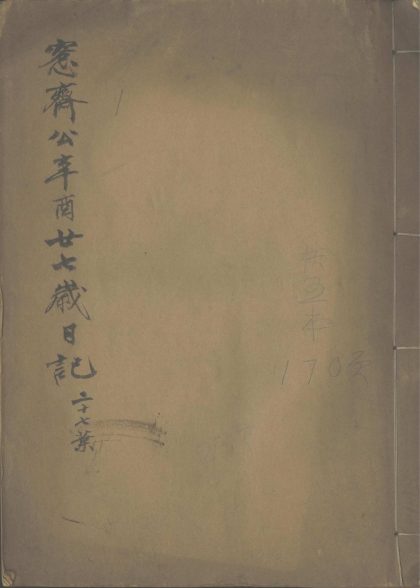 愙齋公辛酉廿七歲日記 二十七葉
1
共四本
170頁